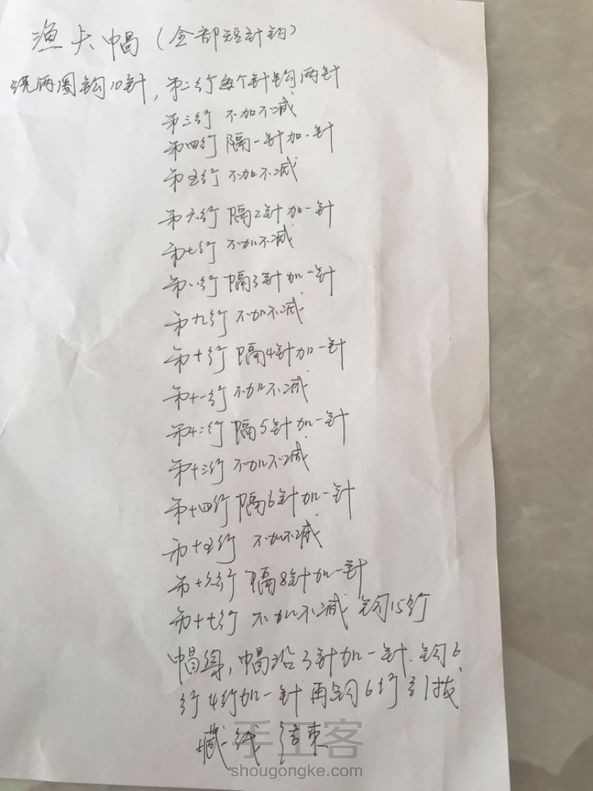 渔夫帽（全部短针钩）
绕两圈钩10针，第二行每个针钩两针
第三行 不加不减
第四行 隔一针加一针
第五行 不加不减
第六行 隔2针加一针
第七行 不加不减
第八行 隔3针加一针
第九行 不加不减
第十行 隔4针加一针
第十一行 不加不减
第十二行 隔5针加一针
第十三行 不加不减
第十四行 隔6针加一针
第十五行 不加不减
第十六行 隔8针加一针
第十七行 不加不减 钩15行
帽身，帽沿3针加一针．钩6
行4行加一针再钩6行引拔
藏线 结束
手工客
shougongke.com